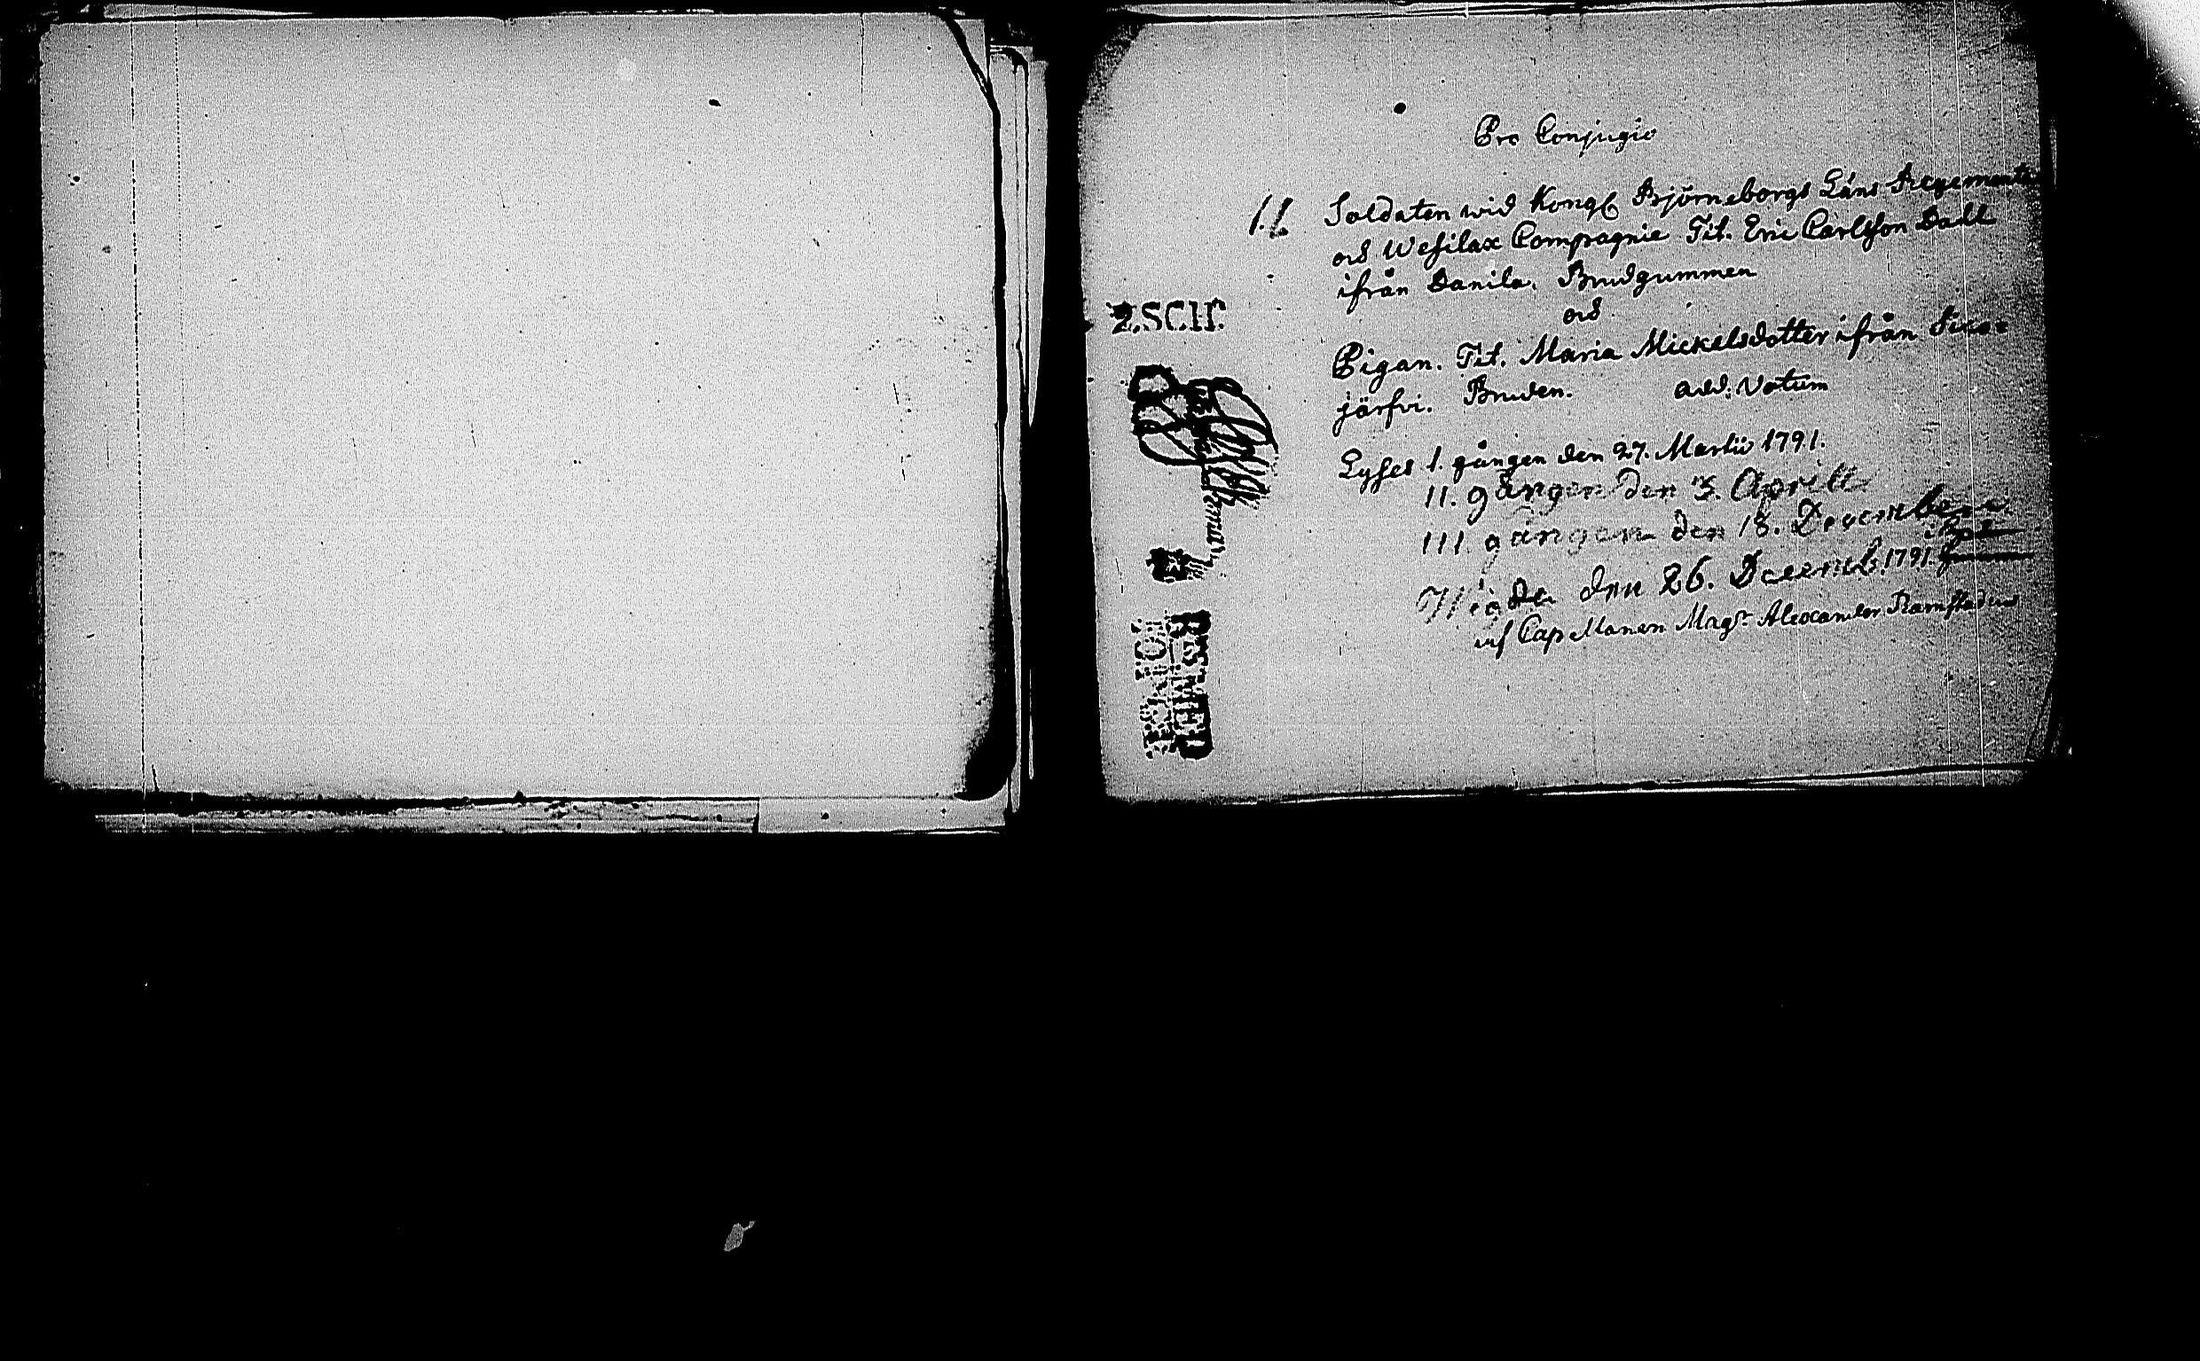 Pro Conjugio
1.
Soldaten wid Kongl Björneborgs Läns Regemente
och Wesilax Compagnie Tit. Eric Carlsson Dahl
ifrån Danila. Brudgummen
och
Pigan. Tit. Maria Mickelsdotter ifrån
järfvi. Bruden. add: Votum
Lyses 1. gången den 27. Martii 1791.
II. gången den 3. Aprill
III gången den 18. December
Wigde den 26. Decemb. 1791.
af Capellanen Magr. Alexander Ramstadius
2.SCH.